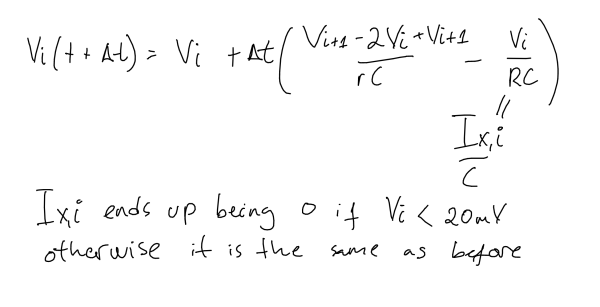 Vi(t + Δt) = Vi + Δt( (Vi+1 - 2Vi + Vi+1)/rC - Vi/RC )
||
Ix,i/C
Ix,i ends up being 0 if Vi < 20mV
otherwise it is the same as before